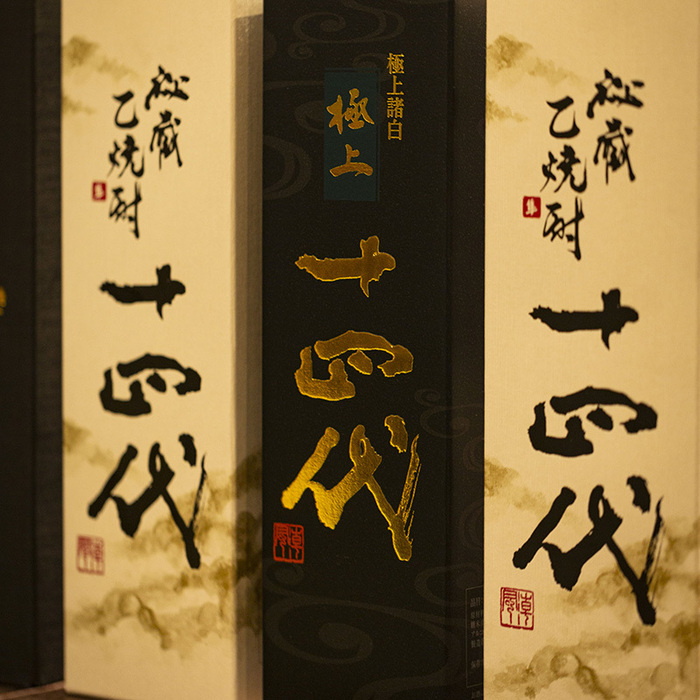 秘蔵
乙焼酎
十四代
極上諸白
極上
十四代
秘蔵
乙焼酎
十四代